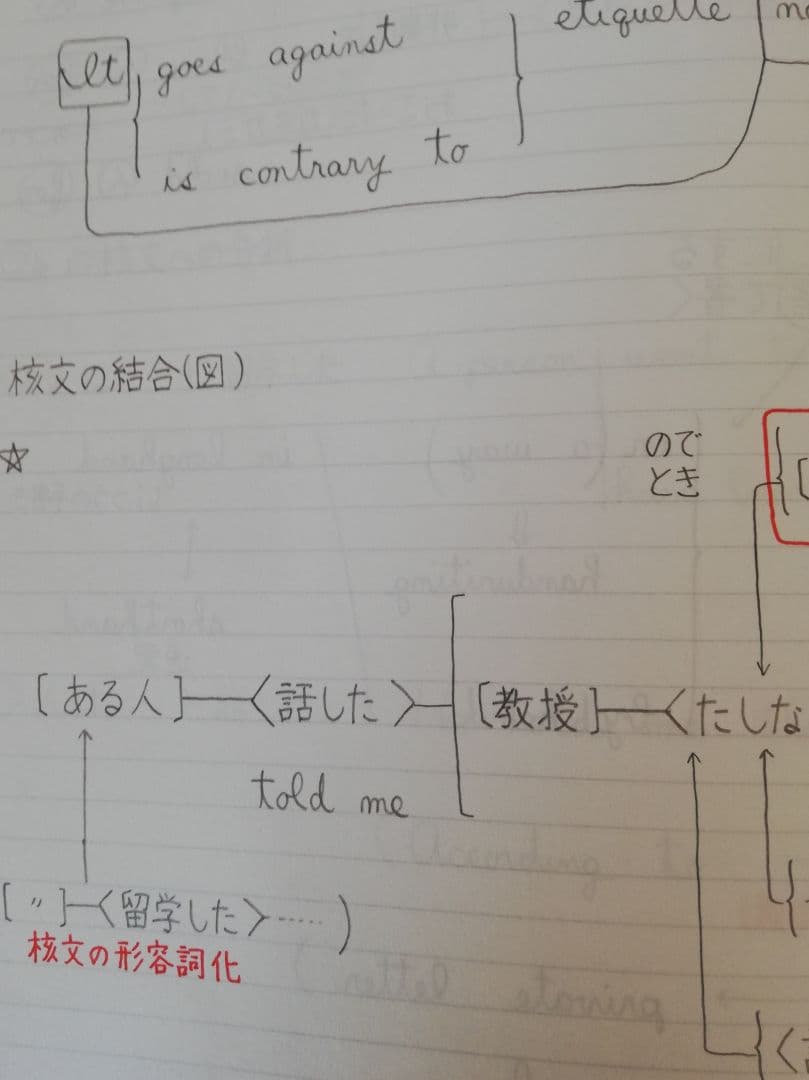 It goes against
is contrary to
etiquette
核文の結合(図)
☆
ので
とき
[ある人]―〈話した〉―[教授]―〈たしな
told me
[〃]―〈留学した〉……)
核文の形容詞化